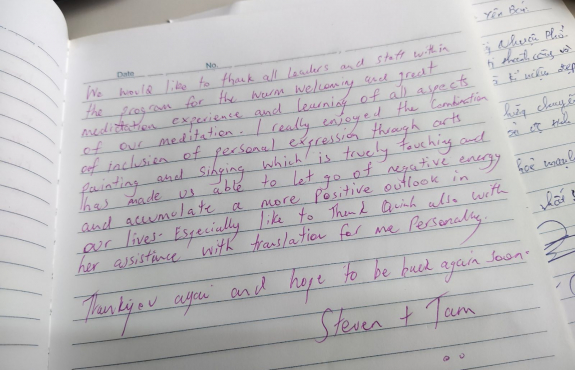 Date No.
We would like to thank all leaders and staff within
the program for the warm welcoming and great
meditation experience and learning of all aspects
of our meditation. I really enjoyed the combination
of inclusion of personal expression through arts
painting and singing which is truely touching and
has made us able to let go of negative energy
and accumolate a more Positive outlook in
our lives. Especially like to Thank Quinh also with
her assistance with translation for me Personally.
Thankyou again and hope to be back again soon.
Steven + Tam
Yên Bái